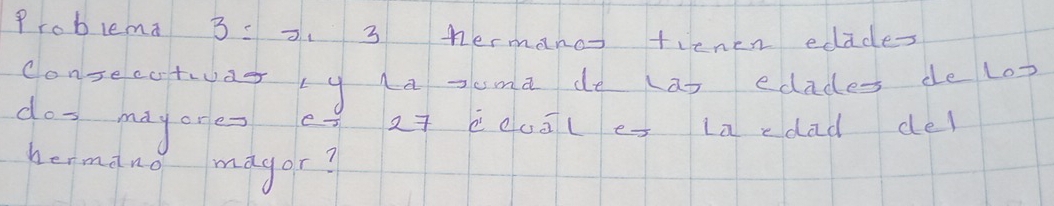 Problema 3: si 3 hermanos tienen edades
Consecutivas, y la suma de las edades de los
dos mayores es 27 ¿cuál es la edad del
hermano mayor?